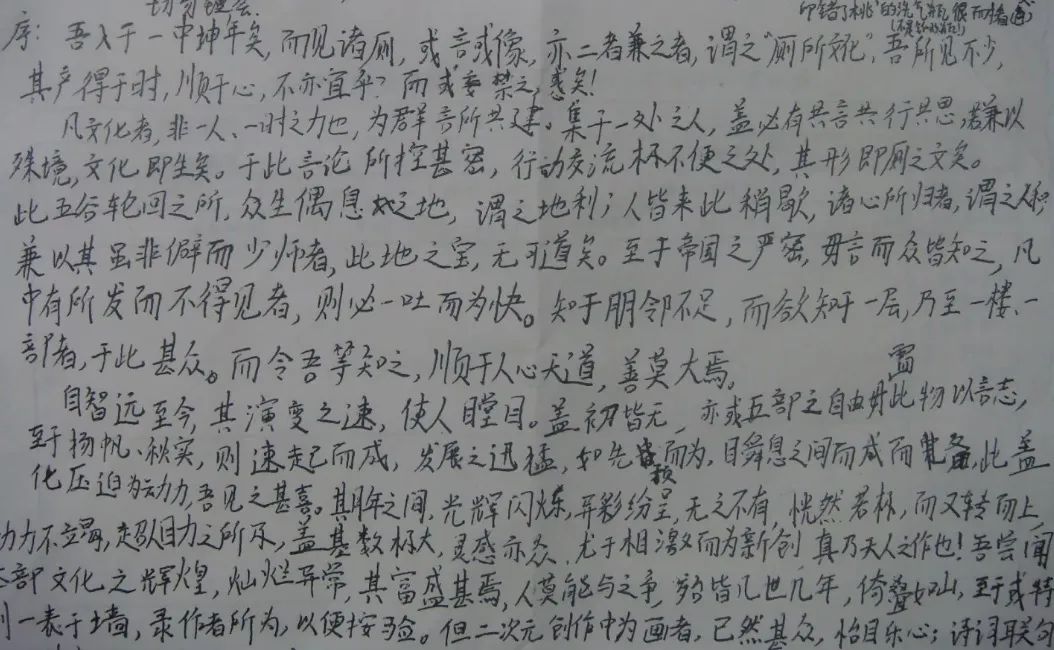 切勿键会.
印错了桃的洗气瓶很而惜
序：吾入于一中坤年矣，而见诸厕，或言或像，亦二者兼之者，谓之“厕所文化”，吾所见不少，
其产得于时，顺于心，不亦宜乎？而或妄禁之，惑矣！
凡文化者，非一人、一时之力也，为群言所共建。集于一处之人，盖必有共言共行共思，兼以
殊境，文化即生矣。于此言论所控甚密，行动交流极不便之处，其形即厕之文矣。
此五谷轮回之所，众生偶息之地，谓之地利；人皆来此稍歇，诸心所归者，谓之人和
兼以其虽非僻而少师者，此地之宝，无可道矣。至于帝国之严密，毋言而众皆知之，凡
中有所发而不得见者，则必一吐而为快。知于朋邻不足，而欲知于一层，乃至一楼、一
部者，于此甚众。而令吾等知之，顺于人心天道，善莫大焉。
自智远至今，其演变之速，使人瞠目。盖初皆无，亦或五部之自由毋需此物以言志，
至于扬帆、秋实，则速起而成，发展之迅猛，如先校而为，目舜息之间而成而备，此盖
化压迫为动力，吾见之甚喜。其期年之间，光辉闪烁，异彩纷呈，无之不有，恍然若林，而又转而上，
动力不立竭，起趴目力之所及，盖基数极大，灵感亦众，尤于相激而为新创，真乃天人之作也！吾尝闻
本部文化之辉煌，灿烂异常，其富盛甚焉，人莫能与之争，夠皆几世几年，倚叠如山，至于或特
列一表于墙，录作者所为，以便按验。但二次元创作中为画者，已然甚众，怡目乐心；诗词联句